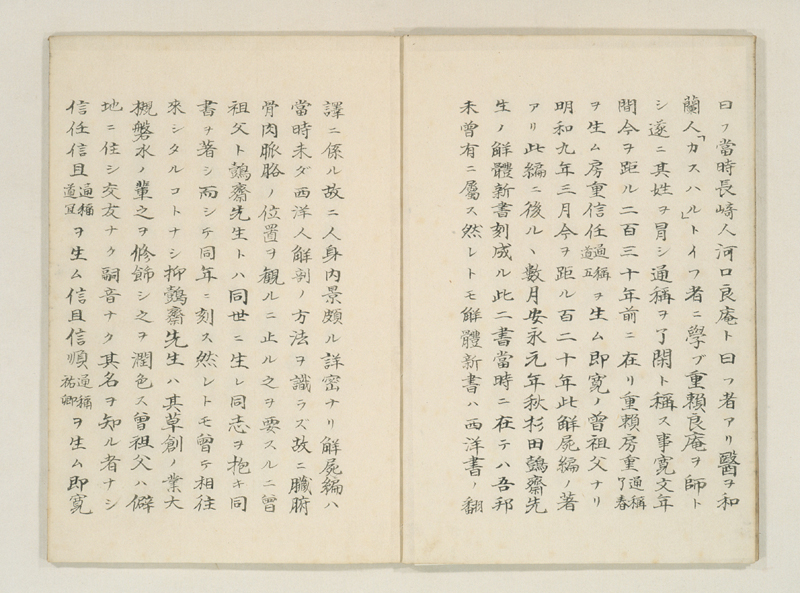 曰フ當時長崎人河口良庵ト曰フ者アリ醫ヲ和
蘭人「カスハル」トイフ者ニ學ブ重賴良庵ヲ師ト
シ遂ニ其姓ヲ冒シ通稱ヲ了閑ト稱ス事寛文年
間今ヲ距ル二百三十年前ニ在リ重賴房重通稱了春
ヲ生ム房重信任通稱道五ヲ生ム即寛ノ曾祖父ナリ
明和九年三月今ヲ距ル百二十年此解屍編ノ著
アリ此編ニ後ルヽ數月安永元年秋杉田鷧齋先
生ノ解體新書刻成ル此二書當時ニ在テハ吾邦
未曾有ニ屬ス然レトモ解體新書ハ西洋書ノ翻
譯ニ係ル故ニ人身内景頗ル詳密ナリ解屍編ハ
當時未ダ西洋人解剖ノ方法ヲ識ラズ故ニ臓腑
骨肉脈胳ノ位置ヲ観ルニ止ル之ヲ要スルニ曾
祖父ト鷧齋先生トハ同世ニ生レ同志ヲ抱キ同
書ヲ著シ而シテ同年ニ刻ス然レトモ曾テ相往
來シタルコトナシ抑鷧齋先生ハ其草創ノ業大
槻磐水ノ輩之ヲ修飾シ之ヲ潤色ス曾祖父ハ僻
地ニ住シ交友ナク詞音ナク其名ヲ知ル者ナシ
信任信且通稱道宜ヲ生ム信且信順通稱祐卿ヲ生ム即寛